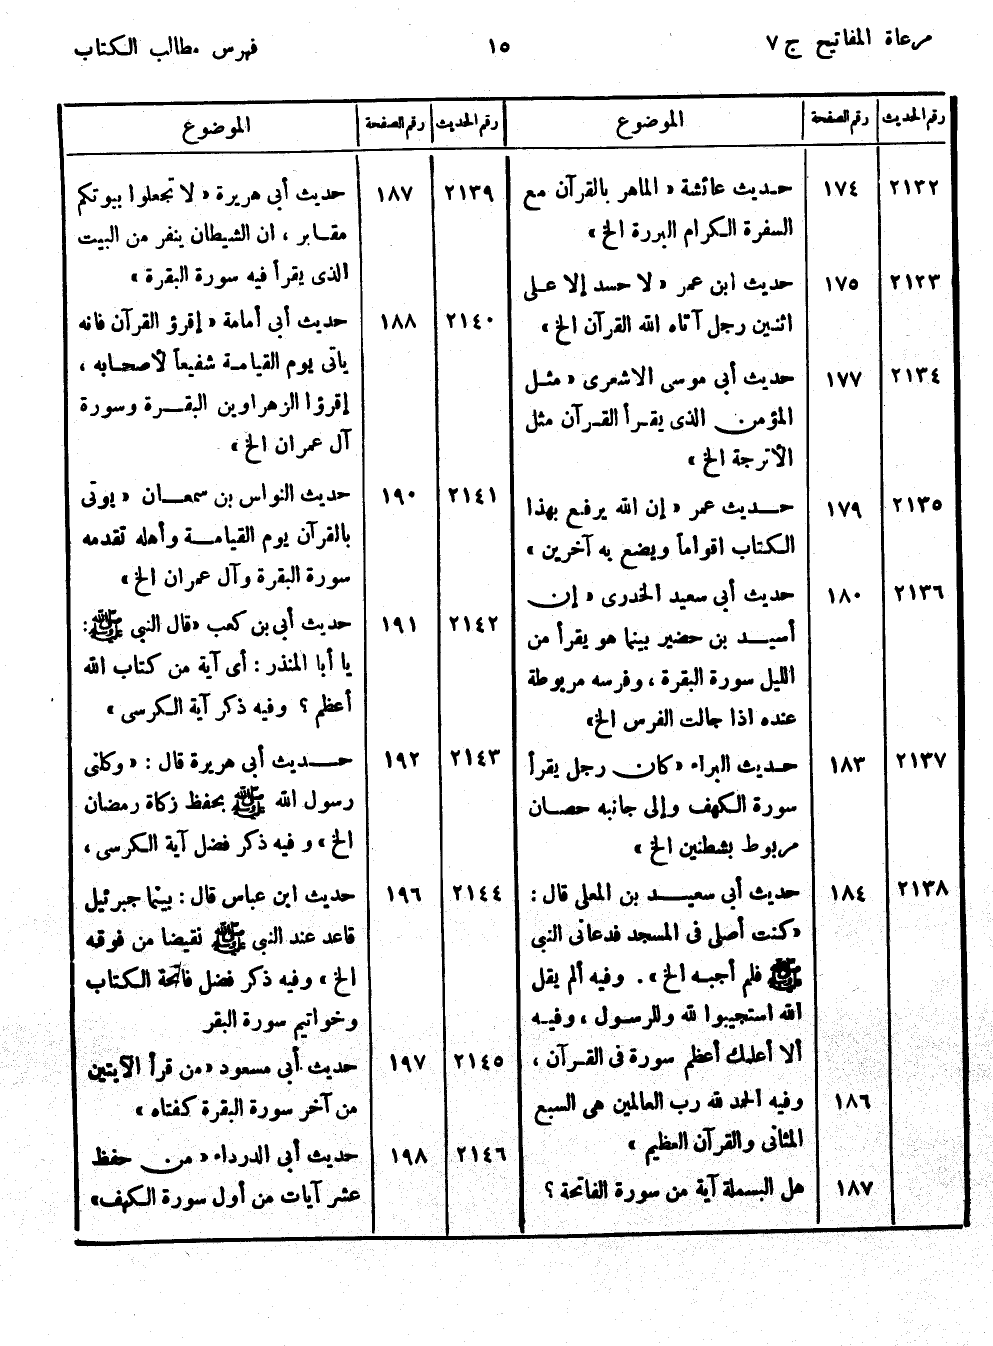 مرعاة المفاتيح ج ٧
١٥
فهرس مطالب الكتاب
رقم الحديث رقم الصفحة الموضوع
٢١٣٢ ١٧٤ حديث عائشة « الماهر بالقرآن مع
السفرة الكرام البررة الخ »
٢١٢٣ ١٧٥ حديث ابن عمر « لا حسد إلا على
اثنين رجل آتاه الله القرآن الخ »
٢١٣٤ ١٧٧ حديث أبي موسى الاشعرى « مثل
المؤمن الذى يقرأ القرآن مثل
الأترجة الخ »
٢١٣٥ ١٧٩ حديث عمر « إن الله يرفع بهذا
الكتاب اقواماً ويضع به آخرين »
٢١٣٦ ١٨٠ حديث أبي سعيد الخدرى « إن
أسيد بن حضير بينما هو يقرأ من
الليل سورة البقرة ، وفرسه مربوطة
عنده اذا جالت الفرس الخ»
٢١٣٧ ١٨٣ حديث البراء «كان رجل يقرأ
سورة الكهف وإلى جانبه حصان
مربوط بشطنين الخ »
٢١٣٨ ١٨٤ حديث أبي سعيد بن المعلى قال :
«كنت أصلى فى المسجد فدعانى النبى
ﷺ فلم أجبه الخ » . وفيه ألم يقل
الله استجيبوا لله وللرسول ، وفيه
ألا أعلمك أعظم سورة فى القرآن ،
١٨٦ وفيه الحمد لله رب العالمين هى السبع
المثانى والقرآن العظيم »
١٨٧ هل البسملة آية من سورة الفاتحة ؟
رقم الحديث رقم الصفحة الموضوع
٢١٣٩ ١٨٧ حديث أبي هريرة « لا تجعلوا بيوتكم
مقابر ، ان الشيطان ينفر من البيت
الذى يقرأ فيه سورة البقرة »
٢١٤٠ ١٨٨ حديث أبي أمامة « إقرؤ القرآن فانه
ياتى يوم القيامة شفيعاً لأصحابه ،
إقرؤا الزهراوين البقرة وسورة
آل عمران الخ »
٢١٤١ ١٩٠ حديث النواس بن سمعان « يوتى
بالقرآن يوم القيامة وأهله تقدمه
سورة البقرة وآل عمران الخ »
٢١٤٢ ١٩١ حديث أبي بن كعب «قال النبي ﷺ :
يا أبا المنذر : أى آية من كتاب الله
أعظم ؟ وفيه ذكر آية الكرسى »
٢١٤٣ ١٩٢ حديث أبي هريرة قال : « وكلنى
رسول الله ﷺ بحفظ زكاة رمضان
الخ » و فيه ذكر فضل آية الكرسى ،
٢١٤٤ ١٩٦ حديث ابن عباس قال : بينما جبرئيل
قاعد عند النبى ﷺ نقيضا من فوقه
الخ » وفيه ذكر فضل فاتحة الكتاب
وخواتيم سورة البقر
٢١٤٥ ١٩٧ حديث أبي مسعود «من قرأ الآيتين
من آخر سورة البقرة كفتاه »
٢١٤٦ ١٩٨ حديث أبي الدرداء « من حفظ
عشر آيات من أول سورة الكهف»